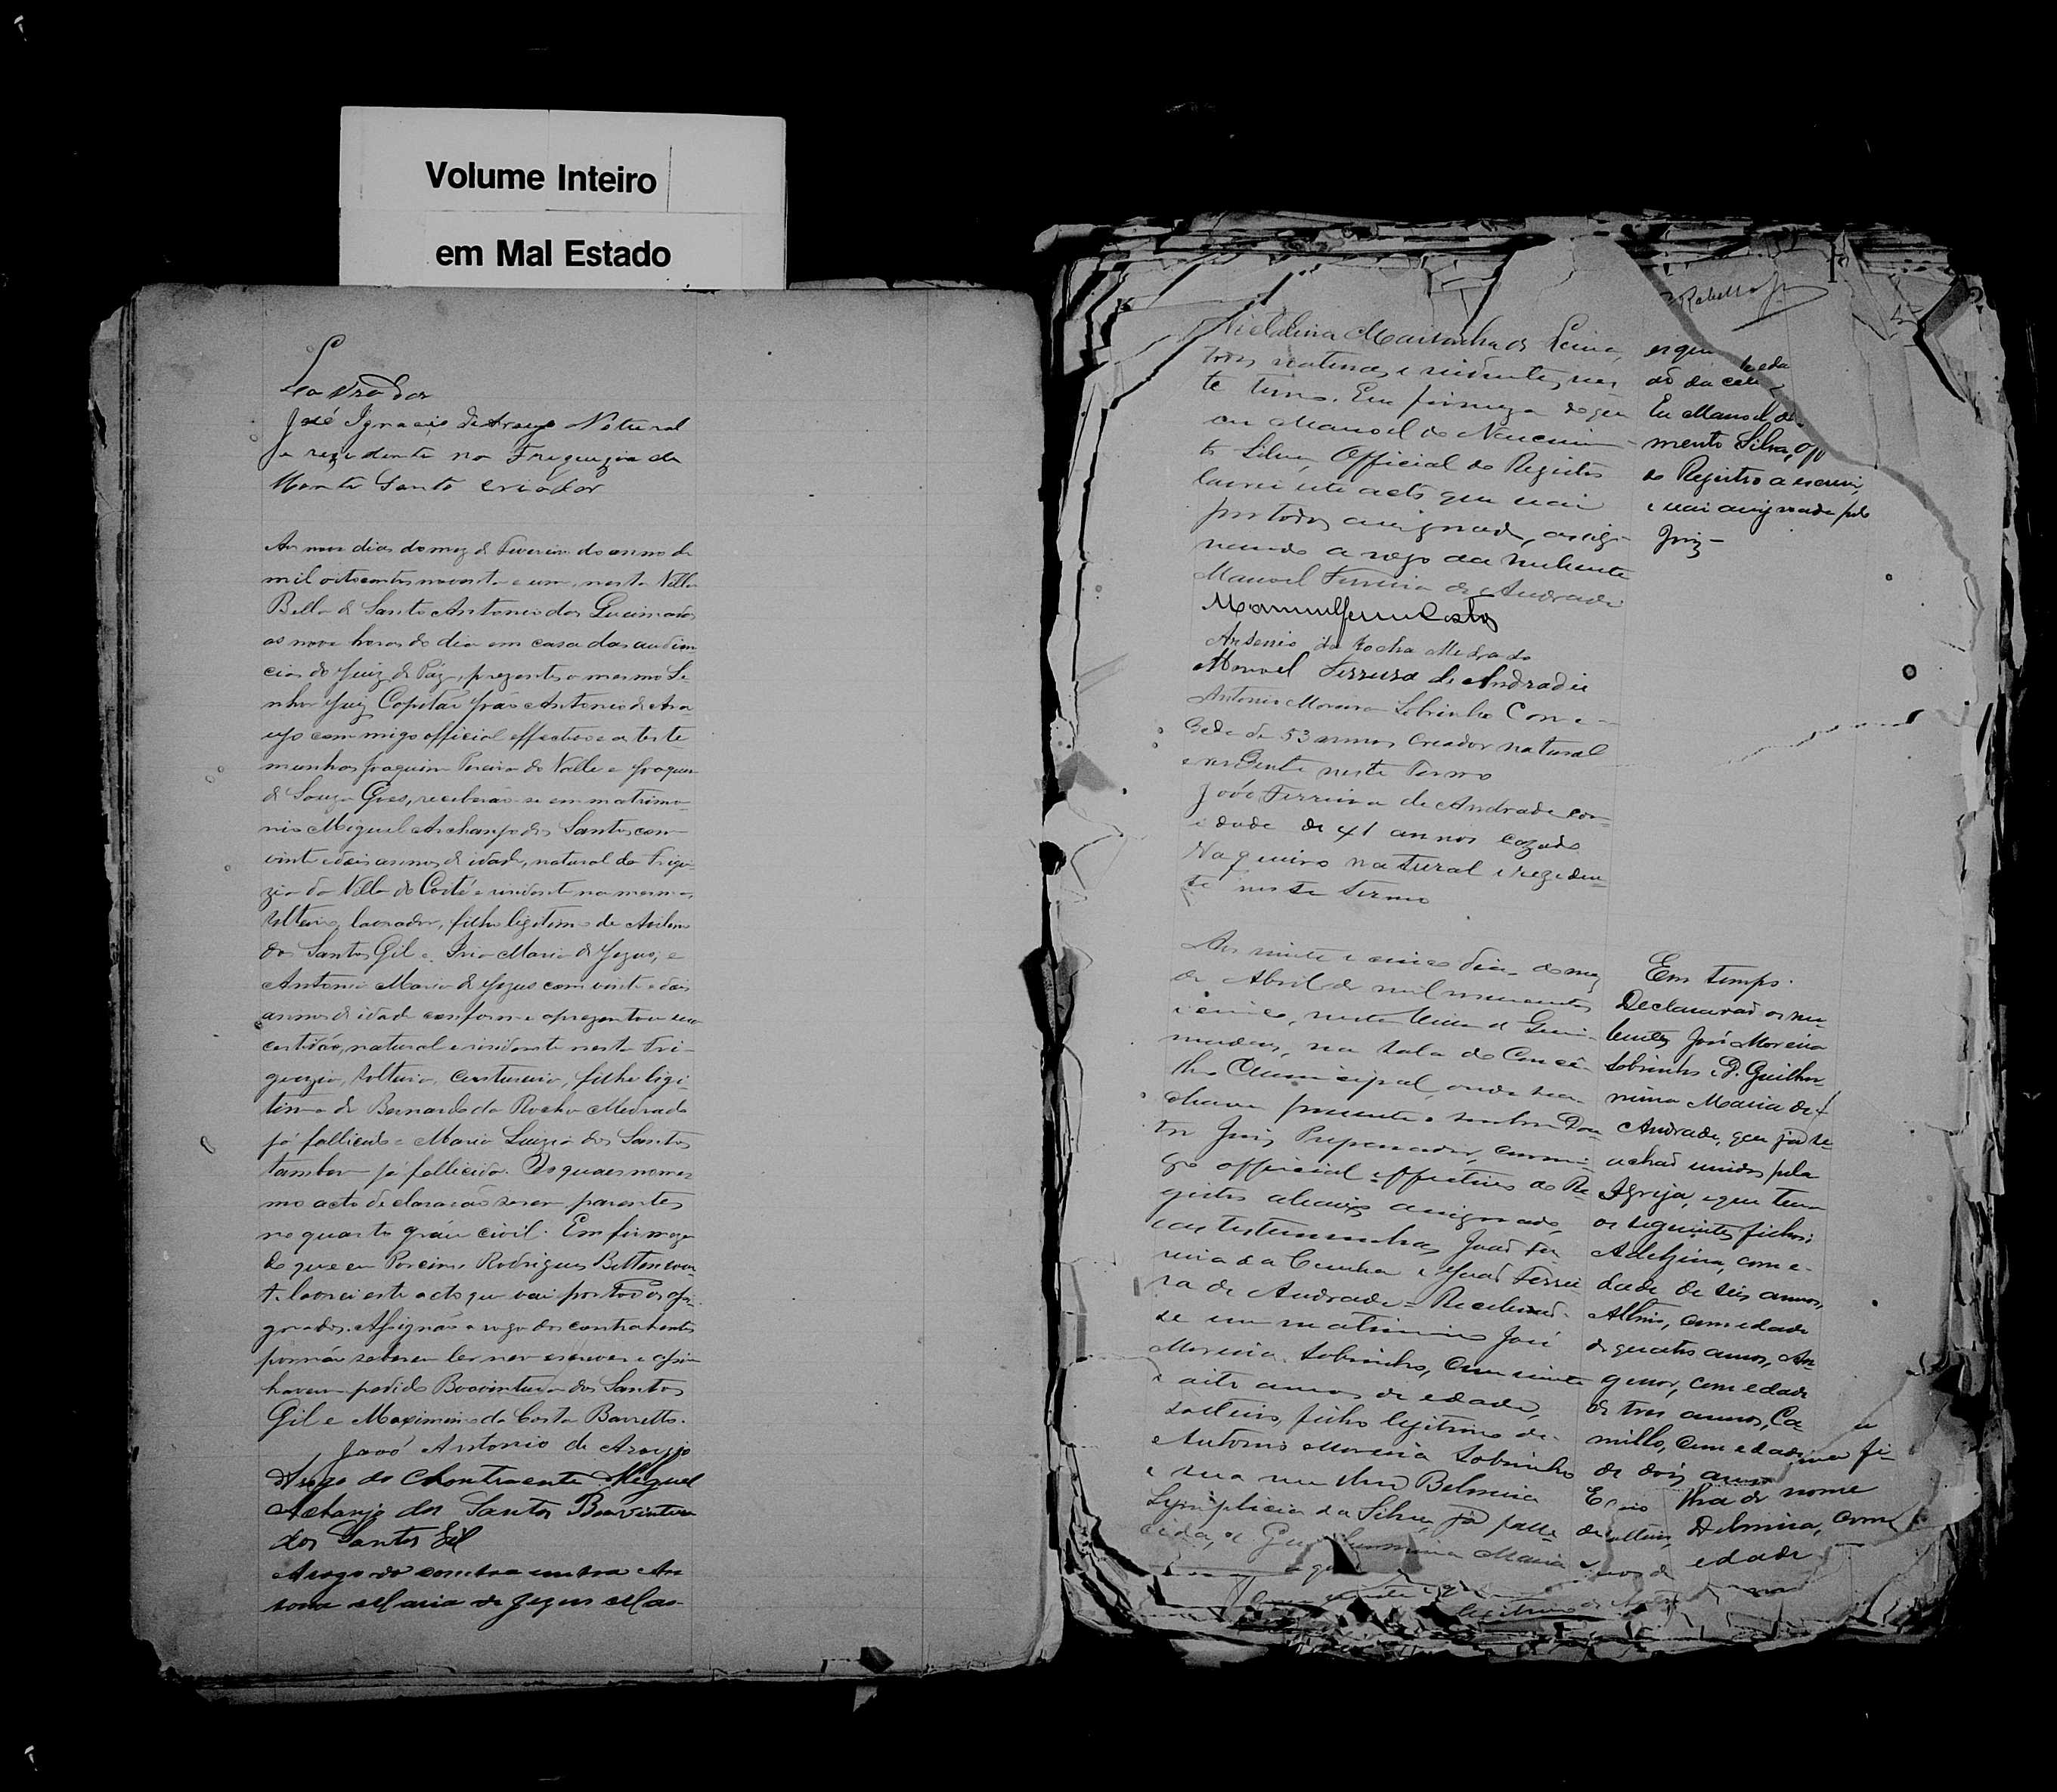 Volume Inteiro
em Mal Estado
Lavrador
José Ignacio de Araujo Natural
e rezidente na Freguezia de
Monte Santo criador
Aos nove dias do mez de Fevereiro do anno de
mil oitocentos noventa e um, nesta Villa
Bella de Santo Antonio das Queimadas
as nove horas do dia em casa das audien
cias do Juiz de Paz, prezente o mesmo Se
nhor Juiz Capitão João Antonio de Ara
ujo commigo official effectivo e as teste
munhas Joaquim Pereira do Valle e Joaquim
de Souza Goes, receberão-se em matrimo-
nio Miguel Archanjo dos Santos com
vinte e dois annos de idade, natural da Fregue
zia da Villa do Coité e residente na mesma,
solteiro, lavrador, filho legitimo de Avelino
dos Santos Gil e Iria Maria de Jezus; e
Antonia Maria de Jezus com vinte e dois
annos de idade conforme aprezentou sua
certidão, natural e residente nesta Fre-
guezia, solteira, costureira, filha legi
tima de Bernardo da Rocha Medrado
já fallicido e Maria Luzia dos Santos
tambem já fallicida. Os quaes no mes
mo acto declararão serem parentes
no quarto gráu civil. Em firmeza
do que eu Porcino Rodrigues Bettencour
t lavrei este acto que vai por todos assi
gnados. Assignão a rogo dos contrahentes
por não saberem ler nem escrever e assim
haverem pedido Boaventura dos Santos
Gil e Maximino da Costa Barretto.
João Antonio de Araujo
A rogo do Chontraente Miguel
Archanjo dos Santos Boaventura
dos Santos Gil
A rogo da contraentra An
tona Maria de Jezus Mas
Rabello Jr
Marinha de Lima,
todos naturaes e residentes nes
te termo. Em firmeza do que
eu Manoel do Nascimen
to Silva, Official do Registro
lavrei este acto que vai
por todos assignado, assig-
nando a rogo da nubente
Manoel Ferreira de Andrade
Arsenio da Rocha Medrado
Manoel Ferreira de Andrade
Antonio Moreira Sobrinho Com e-
dade de 53 annos Creador natural
e rezidente neste Termo
João Ferreira de Andrade com
idade de 41 annos cazado
Vaqueiro natural e rezeden-
te neste termo
Eu Manoel do
mento Silva, Off
do Registro a escrevi,
e vai assignada pelo
Juiz-
Aos vinte e cinco dias do mez
de Abril de mil novecentos
e cinco, nesta Villa de Quei-
madas, na sala do Conse-
lho Municipal, onde se a-
chava presente o senhor Dou-
tor Juiz Preparador, commi-
go official effectivo do Re-
gistro abaixo assignado,
e as testemunhas João Fer
reira da Cunha e João Ferrei
ra de Andrade = Receberaõ-
se em matrimonio José
Moreira Sobrinho, com vinte
e oito annos de edade,
solteiro, filho legitimo de
Antonio Moreira Sobrinho
e sua mulher Belmira
Symplicia da Silva, já falle
cida, e Guilhermina Maria
Em tempo.
Declararaõ os nu-
bentes José Moreira
Sobrinho e D. Guilher-
mina Maria de
Andrade, que já se
achaõ unidos pela
Igreja, e que tem
os seguintes filhos:
Adelzina, com e-
dade de seis annos,
Albino, com edade
de quatro annos, An
genor, com edade
de tres annos, Ca-
millo, com edade
de dois annos
uma fi-
lha de nome
Delmira, com
edade